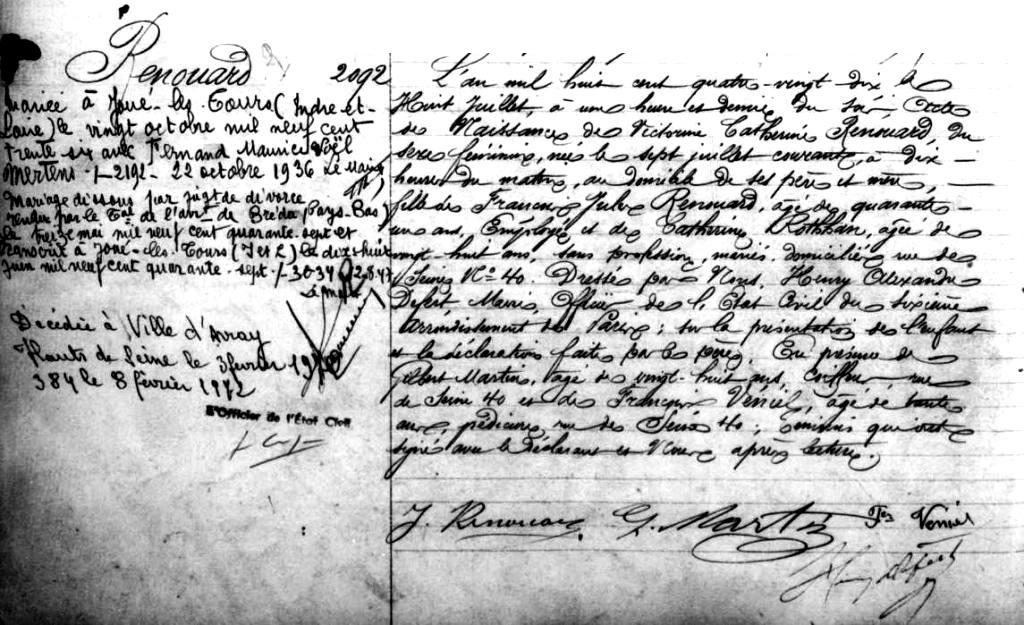 Renouard 2092
Mariée à Joué-les-Tours (Indre-et-
Loire) le vingt octobre mil neuf cent
trente six avec Fernand Maurice Noël
Mertens -/- 2192 - 22 octobre 1936 Le Maire
Mariage dissous par jugt de divorce
rendu par le Tal de l'arrt de Bréda (Pays-Bas)
le treize mai mil neuf cent quarante-sept et
transcrit à Joué-les-Tours (I et L) le dix-huit
juin mil neuf cent quarante-sept -/- 3034
Décédée à Ville d'Avray
Hauts de Seine le 3 février 1972
384 le 8 février 1972
L'Officier de l'État Civil
L'an mil huit cent quatre-vingt-dix le
Huit Juillet, à une heure et demie du soir, Acte
de Naissance de Victorine Catherine Renouard, du
sexe féminin, née le sept juillet courant, à dix
heures du matin, au domicile de ses père et mère,
fille de François Jules Renouard, âgé de quarante-
un ans, Employé et de Catherine Rothhan, âgée de
vingt-huit ans, sans profession, mariés, domiciliés rue de
Seine No 40. Dressé par Nous, Henry Alexandre
Défert, Maire, Officier de l'État Civil du sixième
arrondissement de Paris; sur la présentation de l'enfant
et la déclaration faite par le père. En présence de
Gilbert Martin, âgé de vingt-huit ans, coiffeur, rue
de Seine 40 et de François Vernier, âgé de trente
ans, pédicure, rue de Seine 40; témoins qui ont
signé avec le déclarant et Nous après lecture.
J. Renouard G. Martin Fçs Vernier
Henry Défert